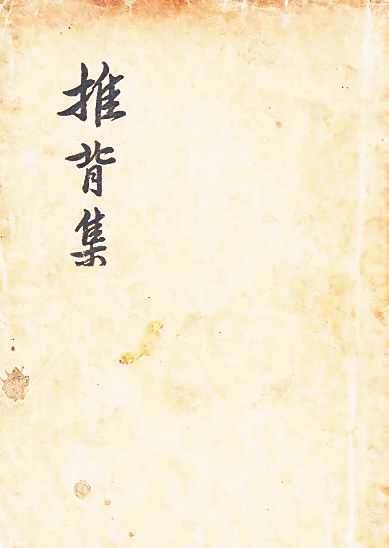 推背集